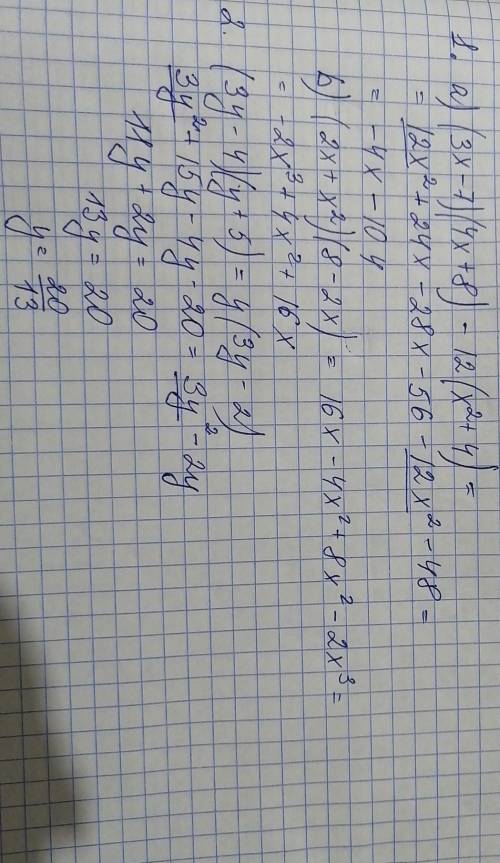 1. a) (3x-7)(4x+8) - 12(x²+4) =
= 12x² + 24x - 28x - 56 - 12x² - 48 =
= -4x - 104
б) (2x + x²)(8 - 2x) = 16x - 4x² + 8x² - 2x³ =
= -2x³ + 4x² + 16x
2. (3y - 4)(y + 5) = y(3y - 2)
3y² + 15y - 4y - 20 = 3y² - 2y
11y + 2y = 20
13y = 20
y = 20/13